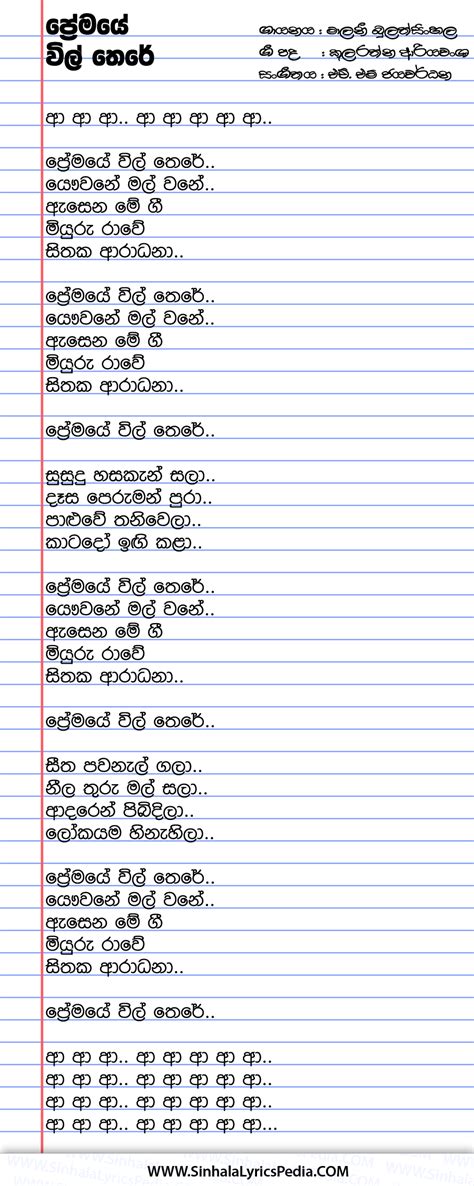 ප්‍රේමයේ
විල් තෙරේ
ගායනය : මාලනී බුලත්සිංහල
ගී පද : කුලරත්න ආරියවංශ
සංගීතය : එච්. එම් ජයවර්ධන
ආ ආ ආ.. ආ ආ ආ ආ ආ..
ප්‍රේමයේ විල් තෙරේ..
යෞවනේ මල් වනේ..
ඇසෙන මේ ගී
මියුරු රාවේ
සිතක ආරාධනා..
ප්‍රේමයේ විල් තෙරේ..
යෞවනේ මල් වනේ..
ඇසෙන මේ ගී
මියුරු රාවේ
සිතක ආරාධනා..
ප්‍රේමයේ විල් තෙරේ..
සුසුදු හසකැන් සලා..
දෑස පෙරුමන් පුරා..
පාළුවේ තනිවෙලා..
කාටදෝ ඉඟි කළා..
ප්‍රේමයේ විල් තෙරේ..
යෞවනේ මල් වනේ..
ඇසෙන මේ ගී
මියුරු රාවේ
සිතක ආරාධනා..
ප්‍රේමයේ විල් තෙරේ..
සීත පවනැල් ගලා..
නීල තුරු මල් සලා..
ආදරෙන් පිබිදිලා..
ලෝකයම හිනැහිලා..
ප්‍රේමයේ විල් තෙරේ..
යෞවනේ මල් වනේ..
ඇසෙන මේ ගී
මියුරු රාවේ
සිතක ආරාධනා..
ප්‍රේමයේ විල් තෙරේ..
ආ ආ ආ.. ආ ආ ආ ආ ආ..
ආ ආ ආ.. ආ ආ ආ ආ ආ..
ආ ආ ආ.. ආ ආ ආ ආ ආ..
ආ ආ ආ.. ආ ආ ආ ආ ආ...
WWW.SinhalaLyricsPedia.COM